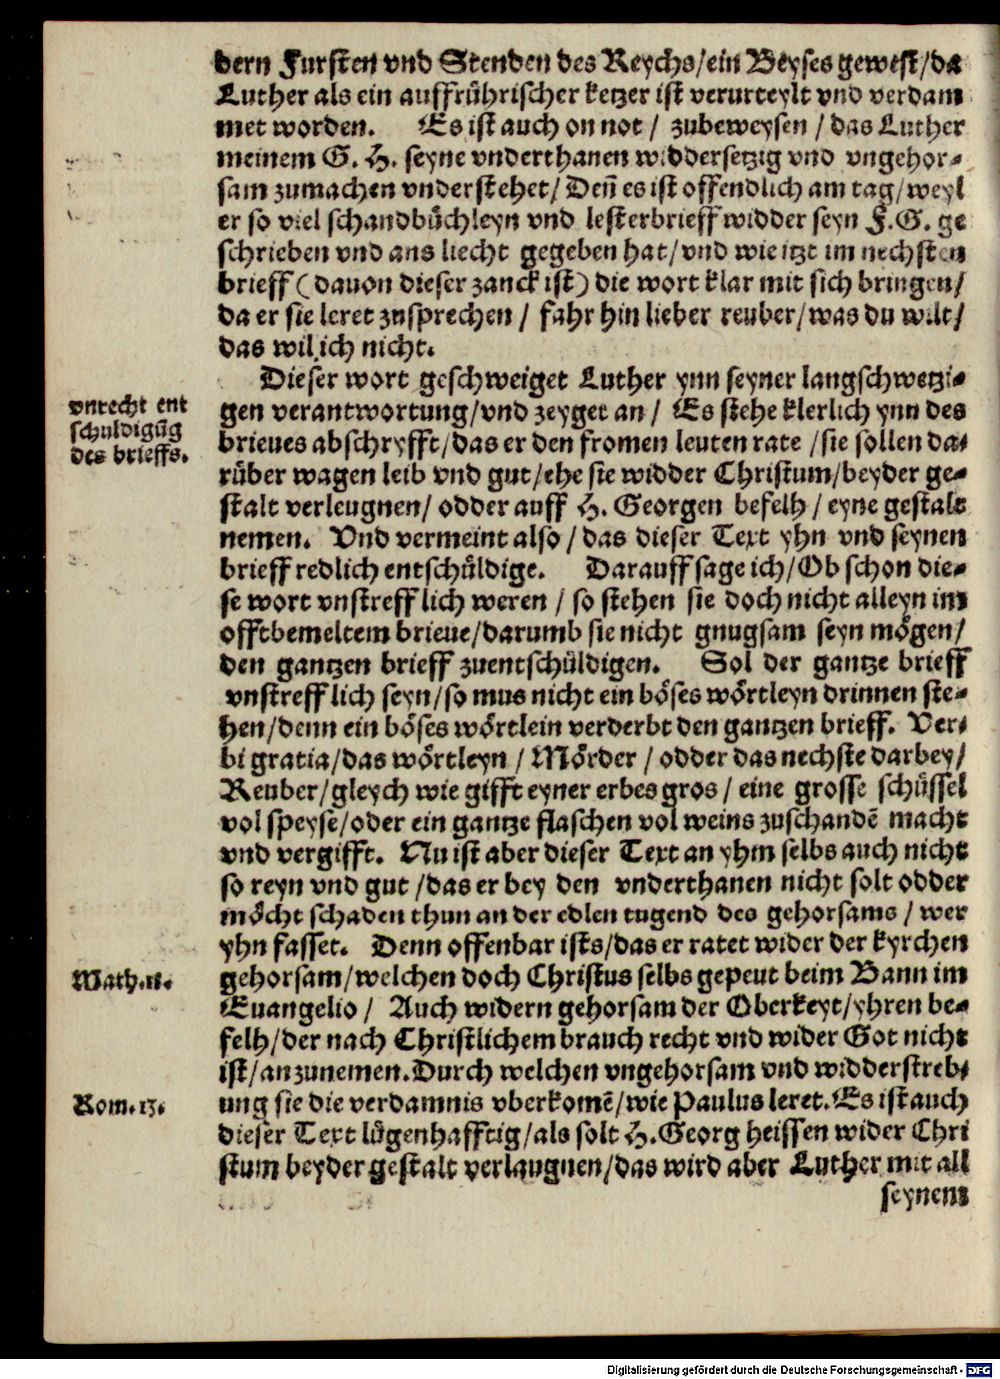 dern Fursten vnd Stenden des Reychs/ein Beyses gewest/da
Luther als ein auffrührischer ketzer ist verurteylt vnd verdam
met worden. Es ist auch on not / zubeweysen / das Luther
meinem G. H. seyne vnderthanen widdersetzig vnd vngehor-
sam zumachen vnderstehet/Deñ es ist offendlich am tag/weyl
er so viel schandbůchleyn vnd lesterbrieff widder seyn F.G. ge
schrieben vnd ans liecht gegeben hat/vnd wie itzt im nechsten
brieff (dauon dieser zanck ist) die wort klar mit sich bringen/
da er sie leret zusprechen / fahr hin lieber reuber/was du wilt/
das wil ich nicht.
Dieser wort geschweiget Luther ynn seyner langschwetzi-
vnrecht ent
schuldigũg
des brieffs.
gen verantwortung/vnd zeyget an / Es stehe klerlich ynn des
brieues abschryfft/das er den fromen leuten rate /sie sollen da-
růber wagen leib vnd gut/ehe sie widder Christum/beyder ge-
stalt verleugnen/ odder auff H. Georgen befelh / eyne gestalt
nemen. Vnd vermeint also / das dieser Text yhn vnd seynen
brieff redlich entschůldige. Darauff sage ich/Ob schon die-
se wort vnstrefflich weren / so stehen sie doch nicht alleyn im
offtbemeltem brieue/darumb sie nicht gnugsam seyn mőgen/
den gantzen brieff zuentschůldigen. Sol der gantze brieff
vnstrefflich seyn/so mus nicht ein bőses wőrtleyn drinnen ste-
hen/denn ein bőses wőrtlein verderbt den gantzen brieff. Ver-
bi gratia/das wőrtleyn / Mőrder / odder das nechste darbey/
Reuber/gleych wie gifft eyner erbes gros / eine grosse schůssel
vol speyse/oder ein gantze flaschen vol weins zuschandẽ macht
vnd vergifft. Nu ist aber dieser Text an yhm selbs auch nicht
so reyn vnd gut /das er bey den vnderthanen nicht solt odder
mőcht schaden thun an der edlen tugend des gehorsams / wer
yhn fasset. Denn offenbar ists/das er ratet wider der kyrchen
Math.18.
gehorsam/welchen doch Christus selbs gepeut beim Bann im
Euangelio / Auch widern gehorsam der Oberkeyt/yhren be-
felh/der nach Christlichem brauch recht vnd wider Got nicht
ist/anzunemen.Durch welchen vngehorsam vnd widderstreb-
Rom.13.
ung sie die verdamnis vberkomẽ/wie Paulus leret.Es ist auch
dieser Text lůgenhafftig/als solt H.Georg heissen wider Chri
stum beyder gestalt verlaugnen/das wird aber Luther mit all
seynem
Digitalisierung gefördert durch die Deutsche Forschungsgemeinschaft - DFG